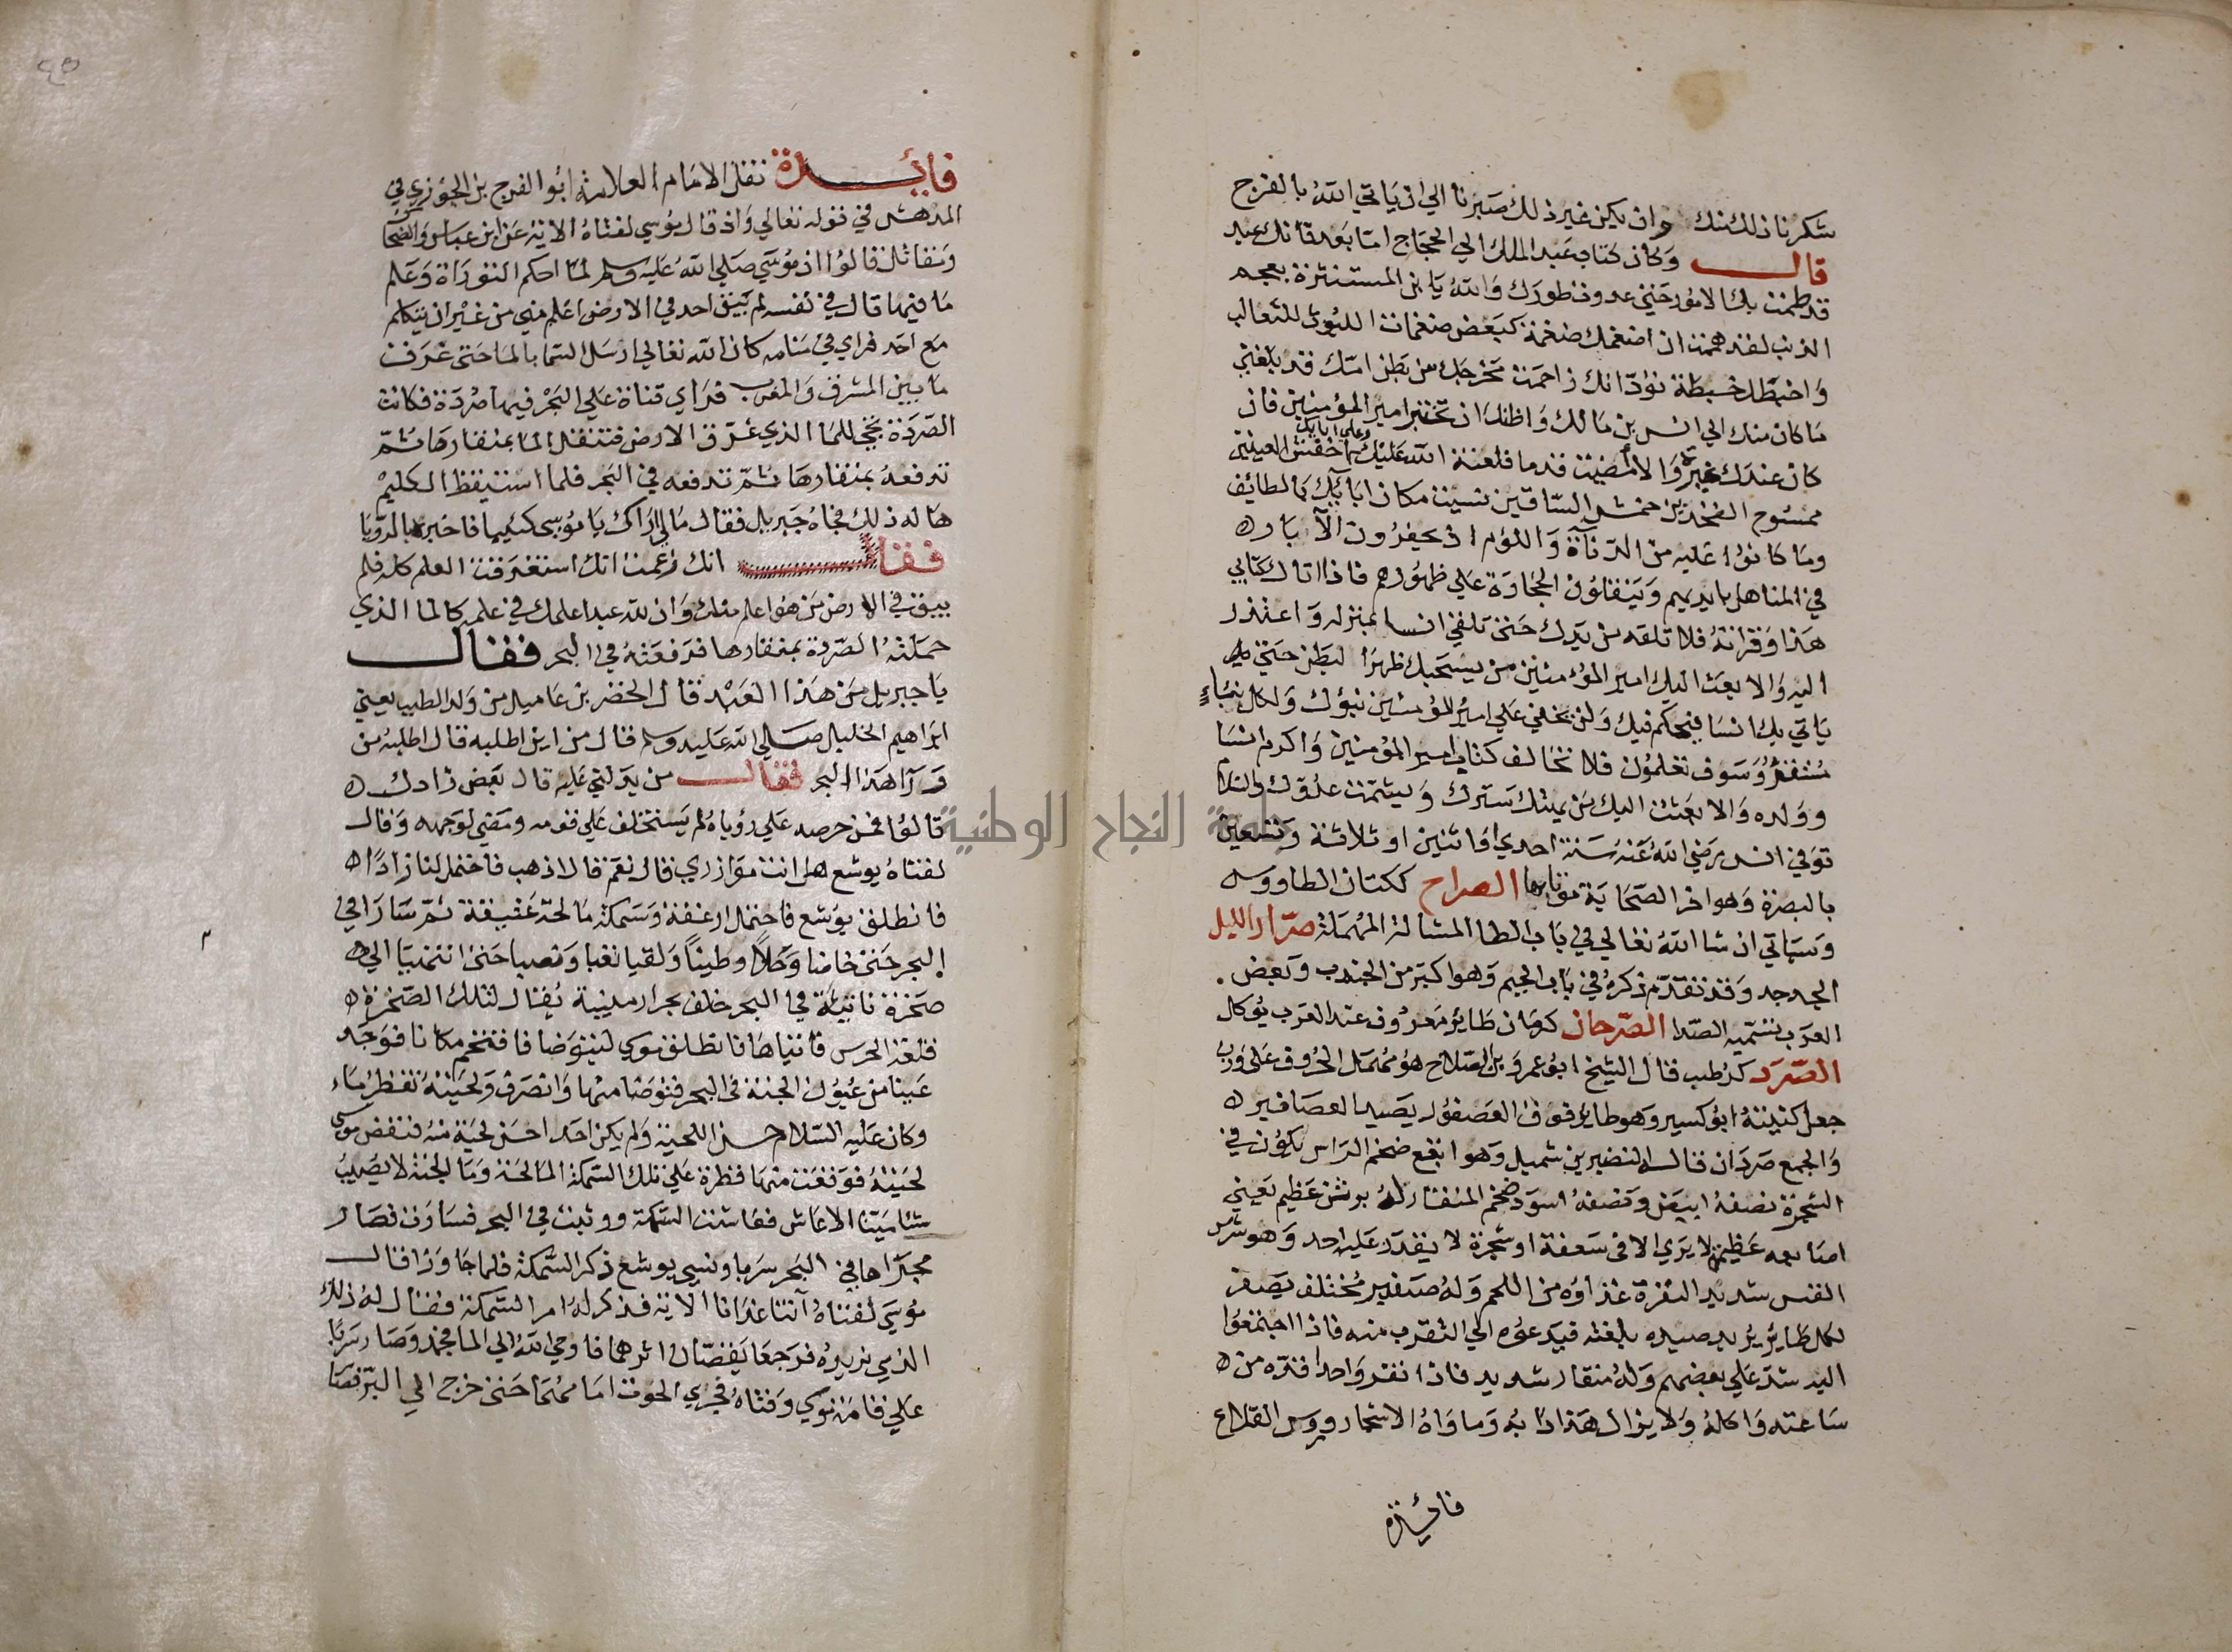 شكرنا ذلك منك وان يكن غير ذلك صبرنا الي ان ياتي الله بالفرج
قال وكان كتاب عبد الملك الي الحجاج اما بعد فانك عبد
قد طمت بك الامور حتي عدوت طورك والله يا ابن المستنثرة بعجم
الزبيب لقد هممت ان اضغمك ضغمة كبعض ضغمات الليوث للثعالب
واخبطك خبطة تود انك زاحمت مخرجك من بطن امك قد بلغني
ما كان منك الي انس بن مالك واظنك ان تختبر امير المؤمنين فان
كان عندك غيرة والا امضيت قدما فلعنة الله عليك وعلي ابايك اخفش العينين
ممسوح الفخذين حمش الساقين نسيت مكان ابائك بالطائف
وما كانوا عليه من الدناة واللؤم اذ يحفرون الآبار
في المناهل بايديهم وينقلون الحجارة علي ظهورهم فاذا اتاك كتابي
هذا وقراته فلا تلقه من يدك حتي تلقي انسا بمنزله واعتذر
اليه والا بعث اليك امير المؤمنين من يسحبك ظهرا لبطن حتي
ياتي بك انسا فيحكم فيك ولن يخفي علي امير المؤمنين نبؤك ولكل نباء
مستقر وسوف تعلمون فلا تخالف كتاب امير المؤمنين واكرم انسا
وولده والا بعثت اليك من يهتك سترك ويشمت عدوك والسلام
توفي انس رضي الله عنه سنة احدي او اثنين او ثلاثة وتسعين
بالبصرة وهو اخر الصحابة موتا بها الصراح ككتان الطاووس
وسياتي ان شا الله تعالي في باب الطا المشالة المهملة صرار الليل
الجدجد وقد تقدم ذكره في باب الجيم وهو اكبر من الجندب وبعض
العرب تسميه الصدا الصرحان كرمان طائر معروف عند العرب يوكل
الصرد كرطب قال الشيخ ابو عمرو بن الصلاح هو مهمل الحروف علي وزن
جعل كنيته ابو كسير وهو طائر فوق العصفور يصيد العصافير
والجمع صردان قال النضير بن شميل وهو ابقع ضخم الراس يكون في
الشجرة نصفه ابيض ونصفه اسود ضخم المنقار له برثن عظيم يعني
اصابعه عظيمة لا يري الا في سعفة او شجرة لا يقدر عليه احد وهو شرس
النفس شديد النفرة غذاؤه من اللحم وله صفير مختلف يصفر
لكل طائر يريد صيده بلغته فيدعوه الي التقرب منه فاذا اجتمعوا
اليه شد علي بعضهم وله منقار شديد فاذا نقر واحدا قده من
ساعته واكله ولا يزال هذا دابه وماواه الاشجار وروس القلاع
فائدة
فائدة نقل الامام العلامة ابو الفرج بن الجوزي في
المدهش في قوله تعالي واذ قال موسي لفتاه الاية عن ابن عباس والضحاك
ومقاتل قالوا ان موسي صلي الله عليه وسلم لما احكم التوراة وعلم
ما فيها قال في نفسه لم يبق احد في الارض اعلم مني من غير ان يتكلم
مع احد فراي في منامه كان الله تعالي ارسل السما بالما حتي غرق
ما بين المشرق والمغرب فراي قناة علي البحر فيها صردة فكانت
الصردة تجي للما الذي غرق الارض فتنقل الما بمنقارها ثم
تدفعه بمنقارها ثم تدفعه في البحر فلما استيقظ الكليم
هاله ذلك فجاه جبريل فقال مالي اراك يا موسي كئيبا فاخبره بالرويا
فقال انك زعمت انك استغرقت العلم كله فلم
يبق في الارض من هو اعلم منك وان لله عبدا علمك في علمه كالما الذي
حملته الصردة بمنقارها فدفعته في البحر فقال
يا جبريل من هذا العبد قال الخضر بن عاميل من ولد الطيب يعني
ابراهيم الخليل صلي الله عليه وسلم قال من اين اطلبه قال اطلبه من
ورآ هذا البحر فقال من يدلني عليه قال بعض زادك
قالوا فمن حرصه علي رؤياه لم يستخلف علي قومه ومضي لوجهه وقال
لفتاه يوشع هل انت موازري قال نعم قال اذهب فاحتمل لنا زادا
فانطلق يوشع فاحتمل ارغفة وسمكة مالحة عتيقة ثم سارا في
البحر حتي خاضا وحلا وطينا ولقيا تعبا ونصبا حتي انتهيا الي
صخرة ناتئة في البحر خلف بحر ارمينية يقال لتلك الصخرة
قلعة الحرس فاتياها فانطلق موسي ليتوضا فاقتحم مكانا فوجد
عينا من عيون الجنة في البحر فتوضا منها وانصرف ولحيته تقطر ماء
وكان عليه السلام حسن اللحية ولم يكن احد احسن لحية منه فنفض موسي
لحيته فوقعت منها قطرة علي تلك السمكة المالحة وما الجنة لا يصيب
شيا ميتا الا عاش فعاشت السمكة ووثبت في البحر فسارت فصار
مجراها في البحر سربا ونسي يوشع ذكر السمكة فلما جاوزا قال
موسي لفتاه آتنا غدانا الاية فذكر له امر السمكة فقال له ذلك
الذي نريده فرجعا يقصان اثرهما فاوحي الله الي الما فجمد وصار سربا
علي قامة موسي وفتاه فجري الحوت امامهما حتي خرج الي البر فصا
جامعة النجاح الوطنية